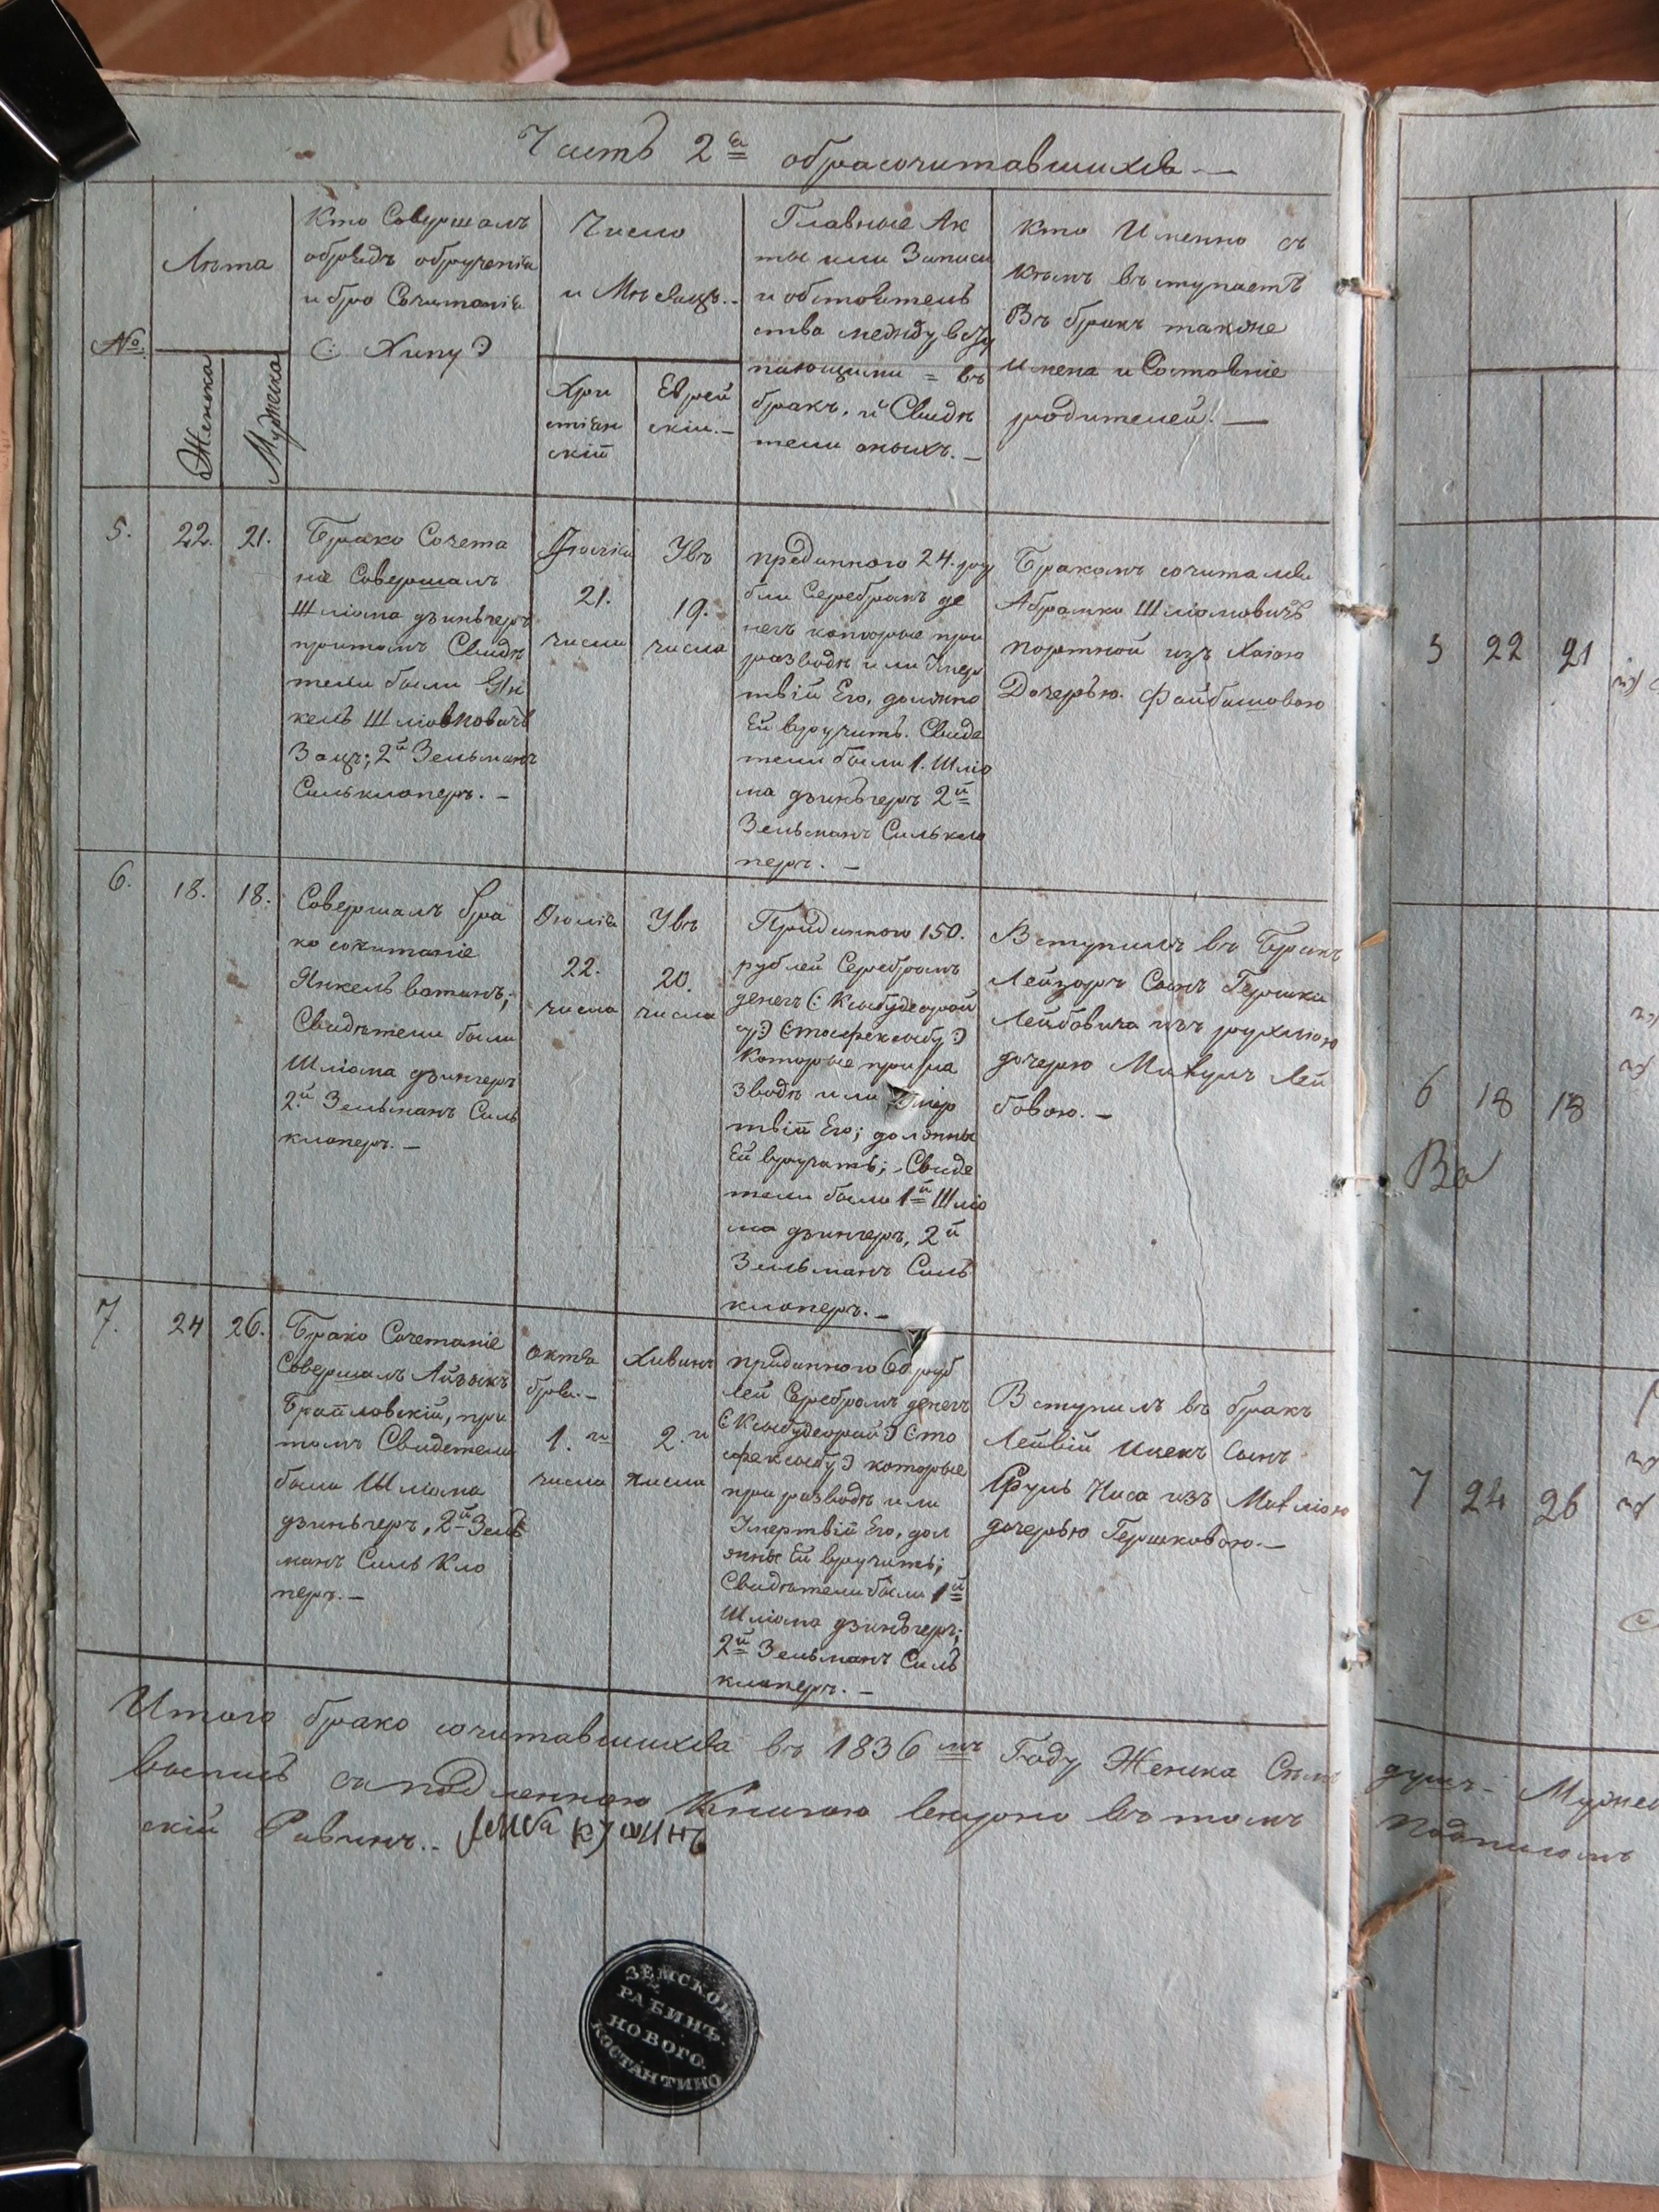 Часть 2я обрасочитавшихся —
№
Лѣта
Женска
Мужеска
Кто Совершалъ
обрядъ обрученія
и бра Сочитанія
(: Хипу :)
Число
и Мѣсяцъ. -
Хри
стіян
скій
Еврей
скій. -
Главные Ак
ты или Записи
и обстоятель
ства между всту
пающими = въ
бракъ, и Свидѣ
тели оныхъ. —
Кто Именно съ
кѣмъ вступаетъ
Въ бракъ также
имена и Состояніе
родителей. —
5.
22.
21.
Брако Сочета
ніе Совершалъ
Шліома дзиньгеръ
притомъ Свидѣ
тели были Ян
кель Шліовковичъ
Зацъ; 2й Зельманъ
Сильклоперъ. —
21.
числа
Увъ
19.
числа
приданного 24. ру
бли Серебромъ де
негъ которые при
разводѣ или Умер
твій Его, должно
Ей вручить. Свиде
тели были 1. Шліо
ма дзиньгеръ 2й
Зельманъ Силькло
перъ. —
Бракомъ сочитались
Абрамко Шліомовичъ
портной изъ Хаіою
Дочерью Файбишовою
6.
18.
18.
Совершалъ бра
ко сочитаніе
Янкель ватанъ;
Свидѣтели были
Шліома дзингеръ
2й Зельманъ Силь
клоперъ. —
Іюлія
22.
числа
Увъ
20.
числа
Приданного 150.
рублей Серебромъ
денегъ
которые при ра
зводѣ или Умер
твій Его; должны
Ей вручать; Свиде
тели были 1й Шліо
ма дзингеръ, 2й
Зельманъ Силь
клоперъ. —
Вступилъ въ Бракъ
Лейзоръ Сынъ Гершка
Лейбовича изъ рухлею
дочерью Лей
бовою. —
7.
24
26.
Брако Сочетаніе
Совершалъ Айзыкъ
Браиловскій, при
томъ Свидетели
были Шліома
дзиньгеръ, 2й Зель
манъ Силь Кло
перъ. —
октя
бря. -
1. го
числа
2. го
числа
приданного 60 руб
лей Серебромъ денегъ
которые
при разводѣ или
Умертвій Его, дол
жны Ей вручить;
Свидѣтели были 1й
Шліома дзиньгеръ;
2й Зельманъ Силь
клоперъ. —
Вступилъ въ бракъ
Лейвій Ицекъ Сынъ
изъ
дочерью Гершковою. —
Итого брако сочитавшихся въ 1836 мъ Году Женска
Книгою въ томъ
скій Равинъ. -
ЗЕМСКОЙ
РАБИНЪ.
НОВОГО.
КОСТАНТИНО
5 22 21
6 18 18
Ва
7 24 26
душъ - Мужес
подписомъ